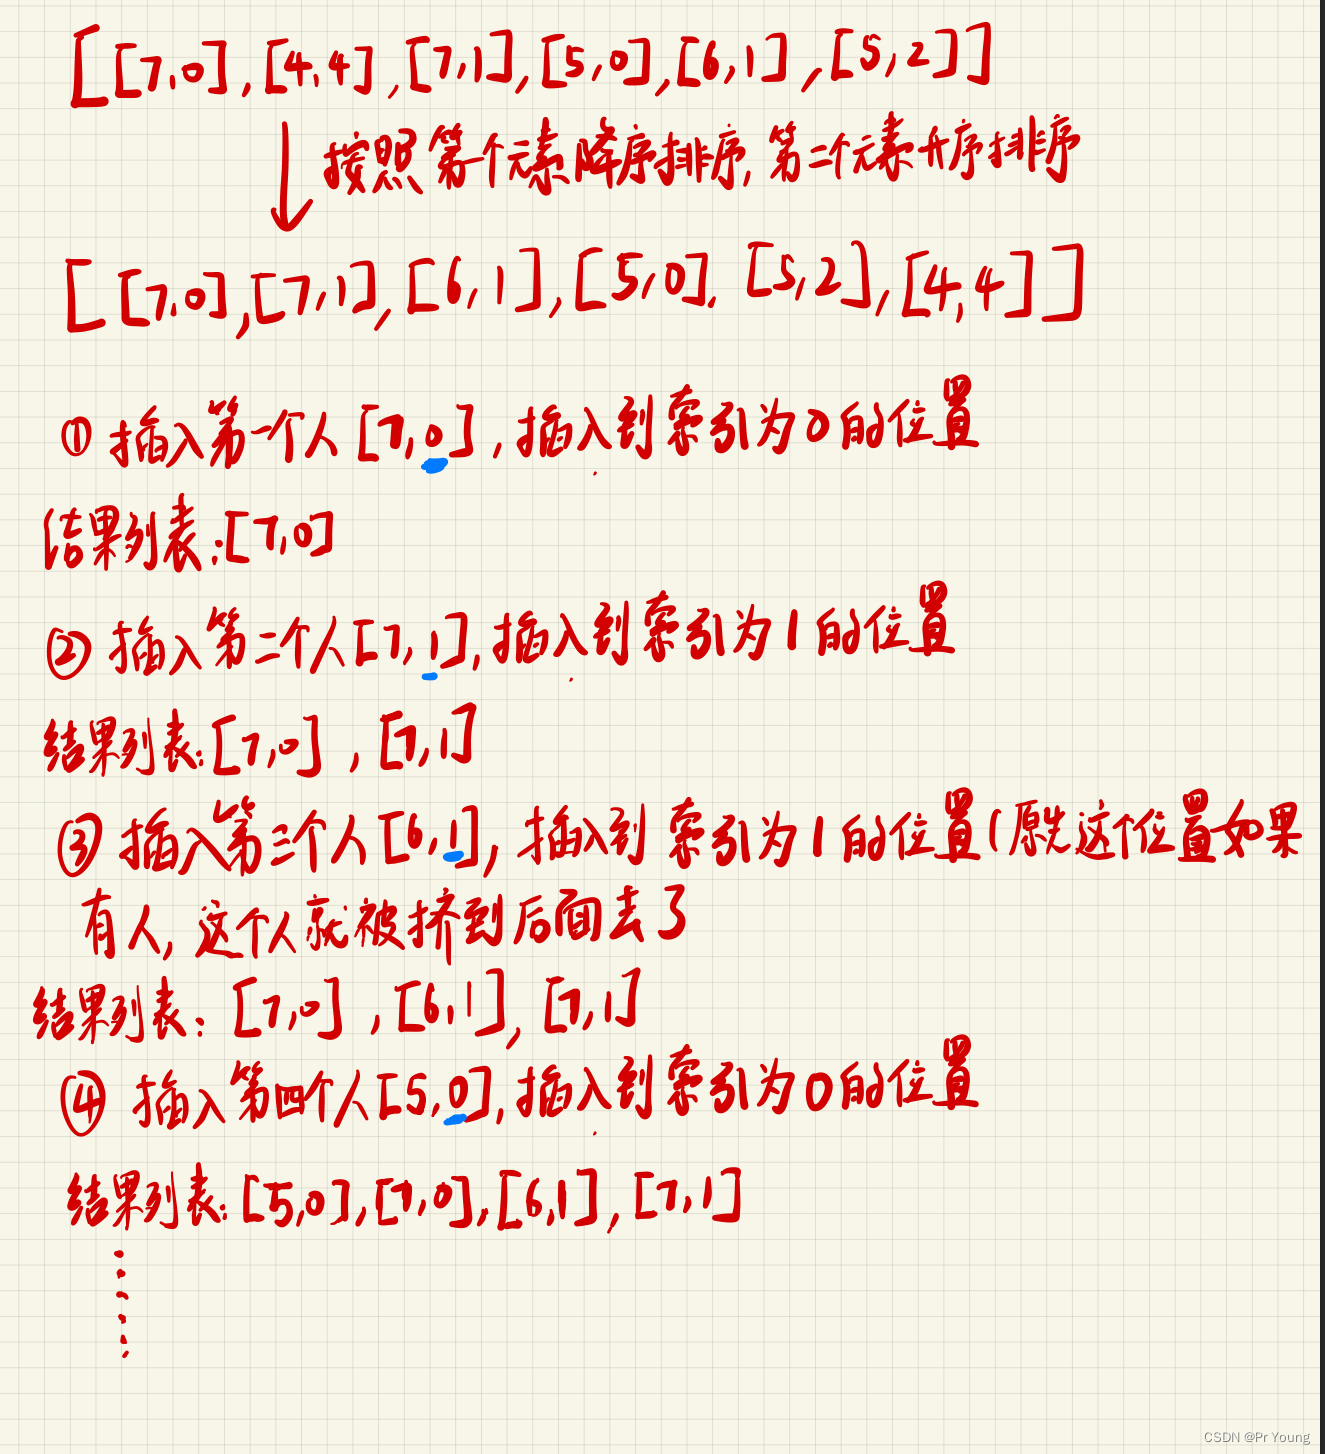 [[7,0],[4,4],[7,1],[5,0],[6,1],[5,2]]
按照第一个元素降序排序,第二个元素升序排序
[[7,0],[7,1],[6,1],[5,0],[5,2],[4,4]]
① 插入第一个人[7,0],插入到索引为0的位置
结果列表:[7,0]
② 插入第二个人[7,1],插入到索引为1的位置
结果列表:[7,0],[7,1]
③ 插入第三个人[6,1],插入到索引为1的位置(原先这个位置如果
有人,这个人就被挤到后面去了
结果列表:[7,0],[6,1],[7,1]
④ 插入第四个人[5,0],插入到索引为0的位置
结果列表:[5,0],[7,0],[6,1],[7,1]
......
CSDN @Pr Young